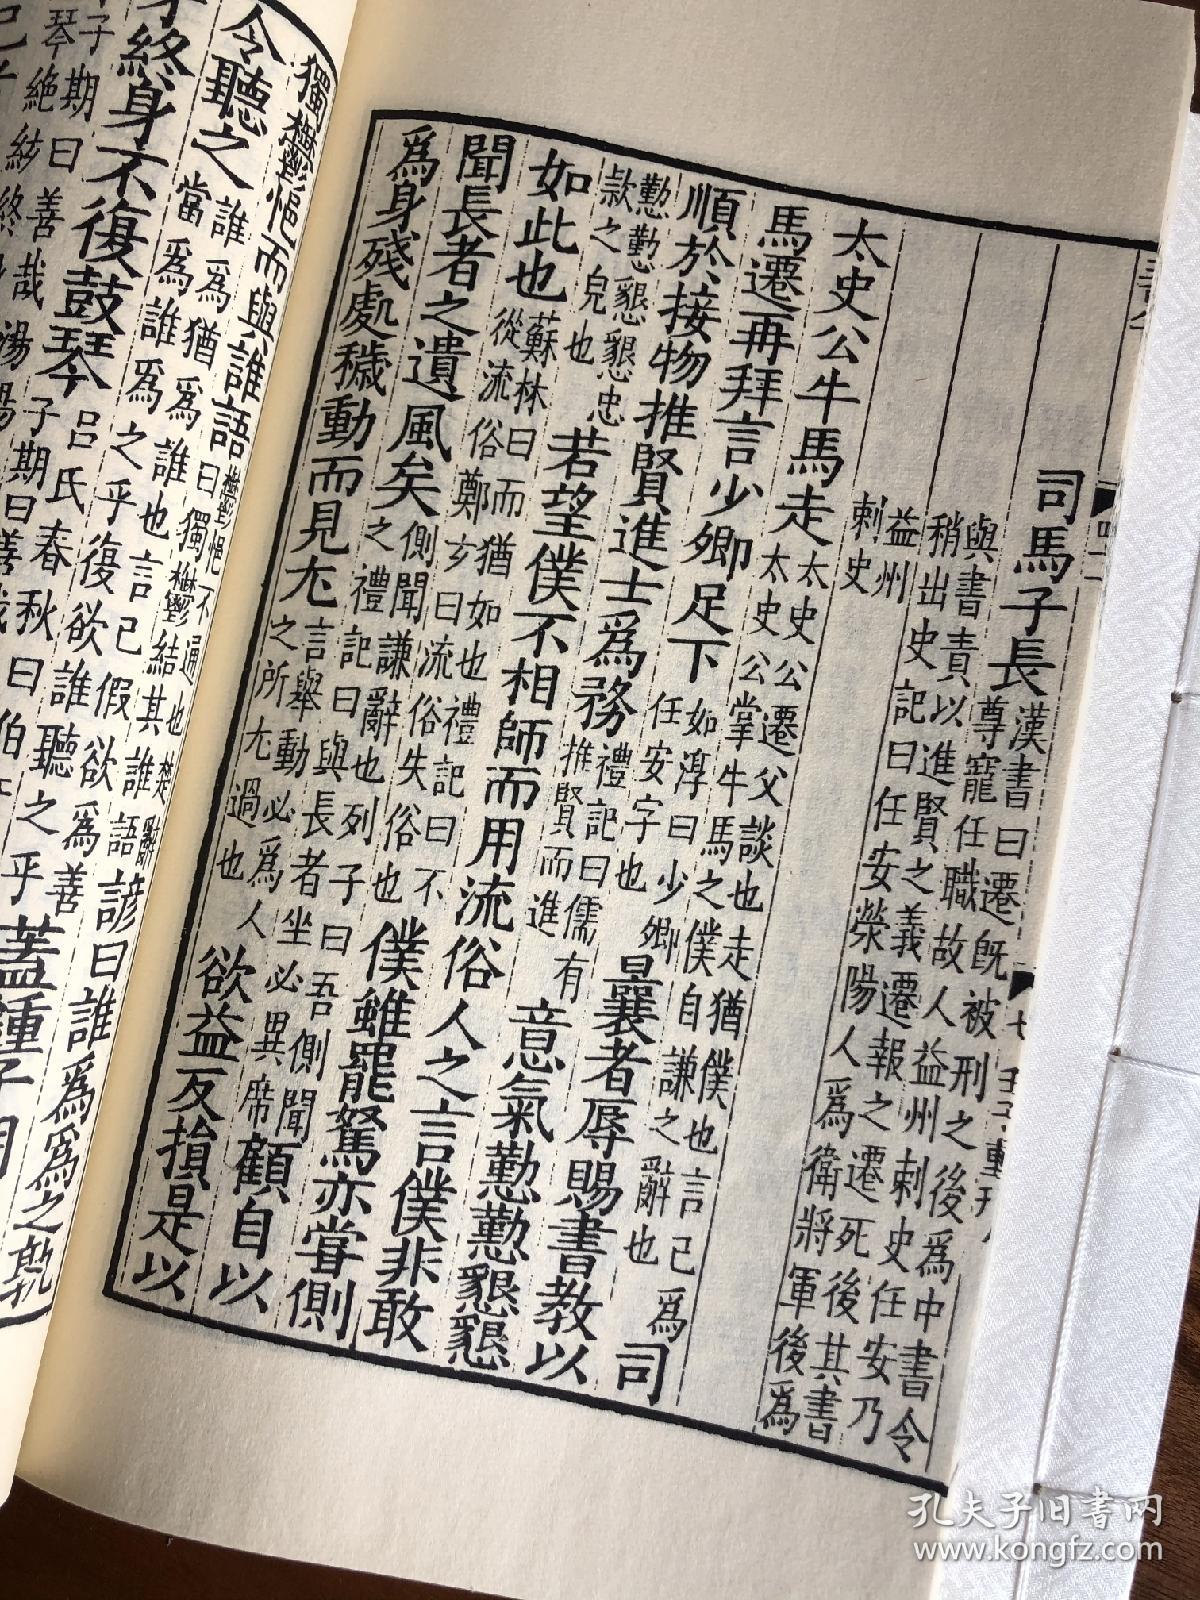 司馬子長漢書曰遷既被刑之後為中書令
尊寵任職故人益州刺史任安乃
與書責以進賢之義遷報之遷死後其書
稍出史記曰任安滎陽人為衛將軍後為
益州
刺史
太史公牛馬走太史公遷父談也走猶僕也言己為
太史公掌牛馬之僕自謙之辭也
司
馬遷再拜言少卿足下如淳曰少卿
任安字也
曩者辱賜書教以
順於接物推賢進士為務禮記曰儒有
推賢而進
意氣懃懃懇懇
懃懃懇懇忠
款之皃也
若望僕不相師而用流俗人之言僕非敢
如此也蘇林曰而猶如也禮記曰不
從流俗鄭玄曰流俗失俗也
僕雖罷駑亦嘗側
聞長者之遺風矣側聞謙辭也列子曰吾側聞
之禮記曰與長者坐必異席
顧自以
為身殘處穢動而見尤言舉動必為人
之所尤過也
欲益反損是以
獨欝悒而與誰語欝悒不通也楚辭
曰獨欝結其誰語
諺曰誰為為之孰
令聽之誰為猶為誰也言己假欲為善
當為誰為之乎復欲誰聽之乎
蓋鍾子
終身不復鼓琴呂氏春秋曰伯
子期曰善
琴絕
孔夫子旧书网
www.kongfz.com